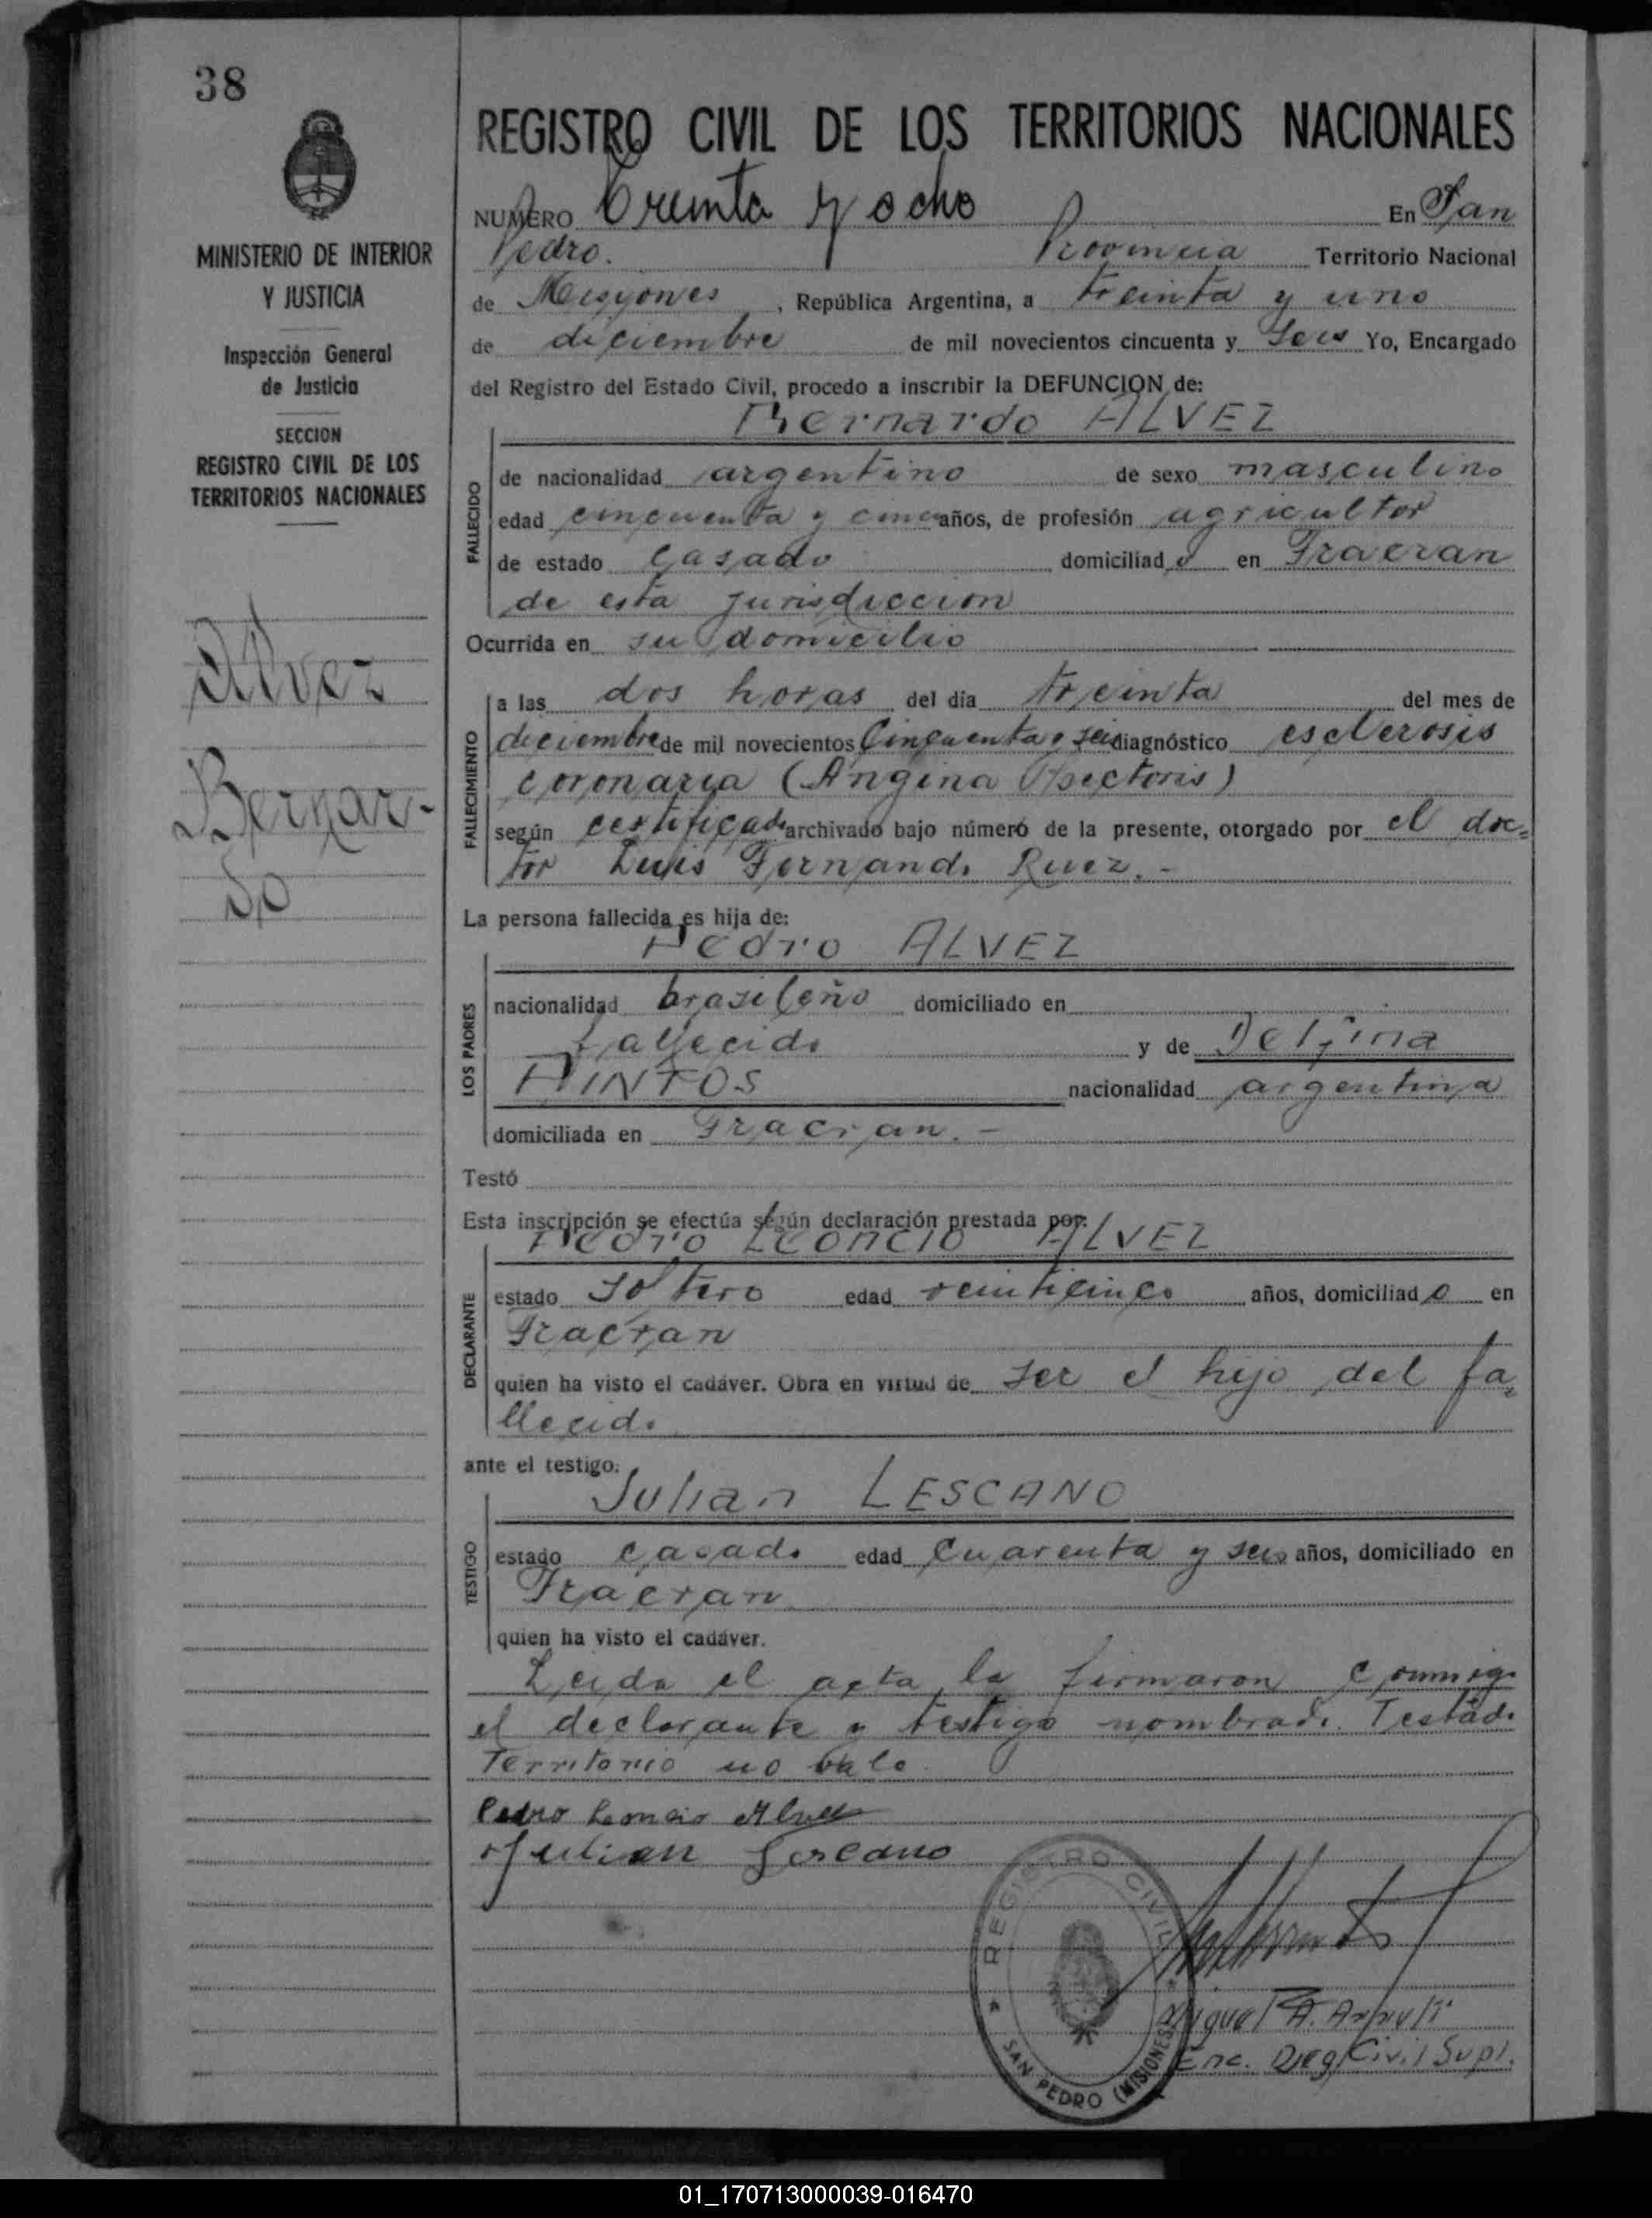 38
MINISTERIO DE INTERIOR
Y JUSTICIA
Inspección General
de Justicia
SECCION
REGISTRO CIVIL DE LOS
TERRITORIOS NACIONALES
Alvez
Bernar-
do
REGISTRO CIVIL DE LOS TERRITORIOS NACIONALES
NUMERO Treinta y ocho En San
Pedro. Provincia Territorio Nacional
de Misyones, República Argentina, a treinta y uno
de diciembre de mil novecientos cincuenta y Seis Yo, Encargado
del Registro del Estado Civil, procedo a inscribir la DEFUNCION de:
Bernardo ALVEZ
FALLECIDO
de nacionalidad argentino de sexo masculino
edad cincuenta y cinco años, de profesión agricultor
de estado Casado domiciliad o en Fracran
de esta jurisdiccion
Ocurrida en su domicilio
FALLECIMIENTO
a las dos horas del dia treinta del mes de
diciembre de mil novecientos Cincuenta y seis diagnóstico esclerosis
coronaria (Angina Pectoris)
según certificado archivado bajo número de la presente, otorgado por el doc=
tor Luis Fernando Ruez. -
La persona fallecida es hija de:
LOS PADRES
Pedro ALVEZ
nacionalidad brasileño domiciliado en
fallecido y de Delfina
PINTOS nacionalidad argentina
domiciliada en Fracran. -
Testó
Esta inscripción se efectúa según declaración prestada por:
DECLARANTE
Pedro Leoncio ALVEZ
estado Soltero edad veinticinco años, domiciliad o en
Fracran
quien ha visto el cadáver. Obra en virtud de ser el hijo del fa=
llecido
ante el testigo:
TESTIGO
Julian LESCANO
estado casado edad Cuarenta y seis años, domiciliado en
Fracran
quien ha visto el cadáver.
Leida el acta la firmaron conmigo
el declarante y testigo nombrado. Testado
Territorio no vale
Pedro Leoncio Alvez
Julian Lescano
REGISTRO CIVIL
SAN PEDRO (MISIONES)
Miguel A.
Enc. Reg. Civil Supl.
01_170713000039-016470